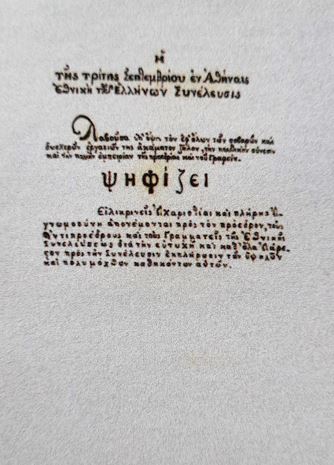 Ἡ
τῆς τρίτης Σεπτεμβρίου ἐν Ἀθήναις
Ἐθνικὴ τῶν Ἑλλήνων Συνέλευσις
Λαβοῦσα ὑπ' ὄψιν τὸν ἐφ' ὅλων τῶν σοβαρῶν καὶ
δυσχερῶν ἐργασιῶν της ἀκάματον ζῆλον, τὴν
καὶ τὴν ἐμπειρίαν τῆς προεδρίας καὶ τοῦ Γραφείου,
ψηφίζει
Εἰλικρινεῖς εὐχαριστίαι καὶ πλήρης εὐ-
γνωμοσύνη ἀπονέμονται πρὸς τὸν πρόεδρον, τοὺς
ἀντιπροέδρους καὶ τοὺς Γραμματεῖς τῆς Ἐθνικῆς
Συνελεύσεως διὰ τὴν εὐτυχῆ καὶ καθ' ὅλα εὐάρε-
στον πρὸς τὴν Συνέλευσιν ἐκπλήρωσιν τῶν ὑψηλῶν
καὶ πολυμόχθων καθηκόντων αὐτῶν.